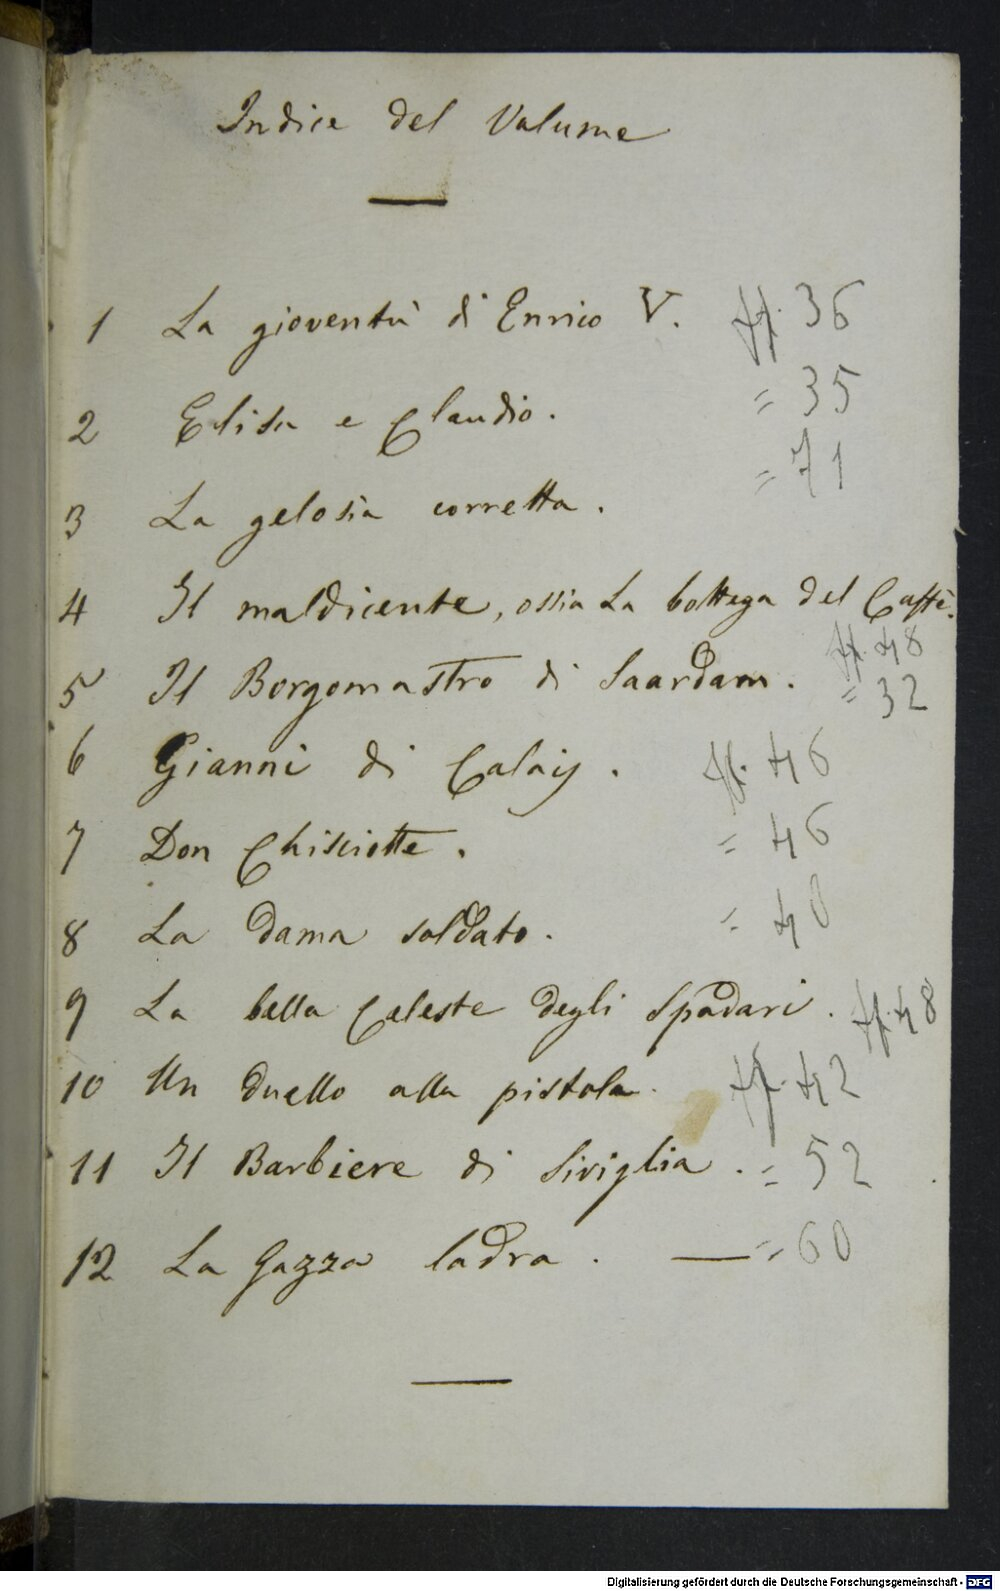 Indice del Volume
1 La gioventù di Enrico V. ff. 36
2 Elisa e Claudio. = 35
3 La gelosia corretta. = 71
4 Il maldicente, ossia La bottega del Caffè.
ff. 48
5 Il Borgomastro di Saardam. = 32
6 Gianni di Calais. ff. 46
7 Don Chisciotte. = 46
8 La dama soldato. = 40
9 La bella Celeste degli Spadari. ff. 48
10 Un duello alla pistola. ff. 42
11 Il Barbiere di Siviglia. = 52
12 La Gazza ladra. — = 60
Digitalisierung gefördert durch die Deutsche Forschungsgemeinschaft - DFG